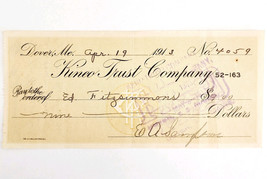 Dover, Me. Apr. 19 1913 No. 4059
Kineo Trust Company 52-163
Pay to the order of Ed. Fitzsimmons $9.00
Nine Dollars
E A Sanford